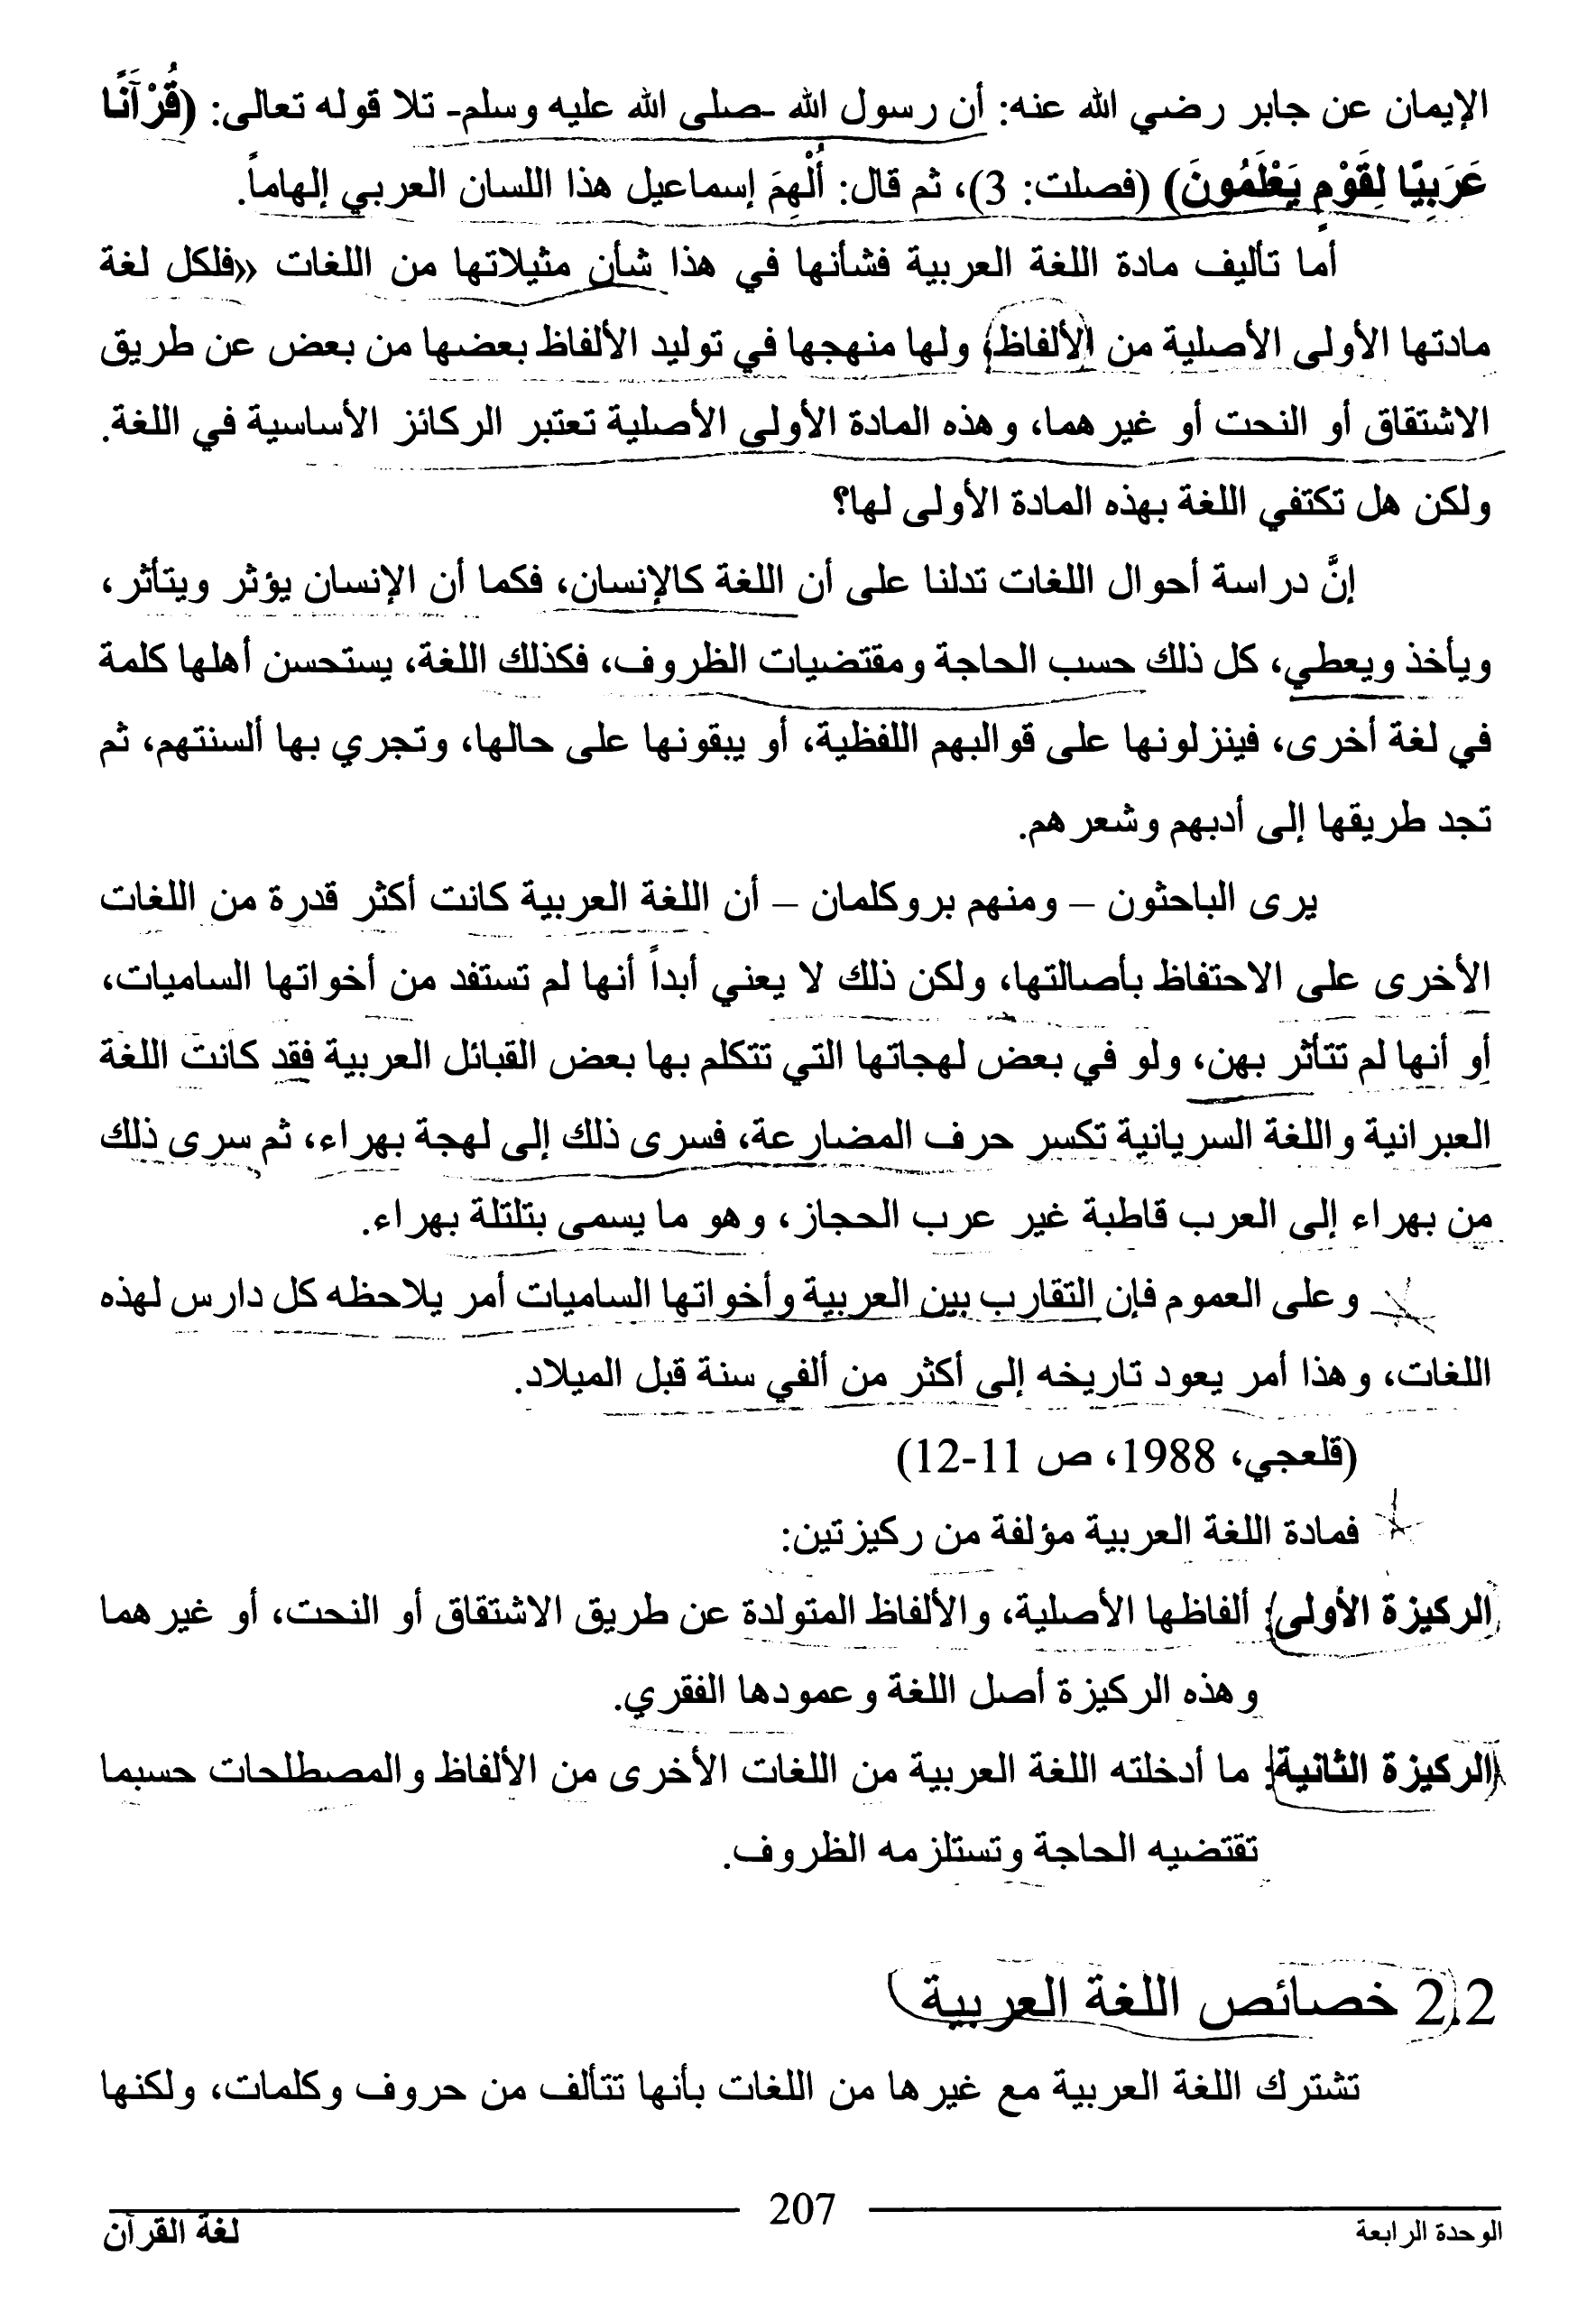 الإيمان عن جابر رضي الله عنه: أن رسول الله -صلى الله عليه وسلم- تلا قوله تعالى: (قُرْآنًا
عَرَبِيًّا لِقَوْمٍ يَعْلَمُونَ) (فصلت: 3)، ثم قال: أُلْهِمَ إسماعيل هذا اللسان العربي إلهاماً.
أما تأليف مادة اللغة العربية فشأنها في هذا شأن مثيلاتها من اللغات «فلكل لغة
مادتها الأولى الأصلية من الألفاظ، ولها منهجها في توليد الألفاظ بعضها من بعض عن طريق
الاشتقاق أو النحت أو غيرهما، وهذه المادة الأولى الأصلية تعتبر الركائز الأساسية في اللغة.
ولكن هل تكتفي اللغة بهذه المادة الأولى لها؟
إنَّ دراسة أحوال اللغات تدلنا على أن اللغة كالإنسان، فكما أن الإنسان يؤثر ويتأثر،
ويأخذ ويعطي، كل ذلك حسب الحاجة ومقتضيات الظروف، فكذلك اللغة، يستحسن أهلها كلمة
في لغة أخرى، فينزلونها على قوالبهم اللفظية، أو يبقونها على حالها، وتجري بها ألسنتهم، ثم
تجد طريقها إلى أدبهم وشعرهم.
يرى الباحثون – ومنهم بروكلمان – أن اللغة العربية كانت أكثر قدرة من اللغات
الأخرى على الاحتفاظ بأصالتها، ولكن ذلك لا يعني أبداً أنها لم تستفد من أخواتها الساميات،
أو أنها لم تتأثر بهن، ولو في بعض لهجاتها التي تتكلم بها بعض القبائل العربية فقد كانت اللغة
العبرانية واللغة السريانية تكسر حرف المضارعة، فسرى ذلك إلى لهجة بهراء، ثم سرى ذلك
من بهراء إلى العرب قاطبة غير عرب الحجاز، وهو ما يسمى بتلتلة بهراء.
وعلى العموم فإن التقارب بين العربية وأخواتها الساميات أمر يلاحظه كل دارس لهذه
اللغات، وهذا أمر يعود تاريخه إلى أكثر من ألفي سنة قبل الميلاد.
(قلعجي، 1988، ص 11-12)
فمادة اللغة العربية مؤلفة من ركيزتين:
الركيزة الأولى: ألفاظها الأصلية، والألفاظ المتولدة عن طريق الاشتقاق أو النحت، أو غيرهما
وهذه الركيزة أصل اللغة وعمودها الفقري.
الركيزة الثانية: ما أدخلته اللغة العربية من اللغات الأخرى من الألفاظ والمصطلحات حسبما
تقتضيه الحاجة وتستلزمه الظروف.
2.2 خصائص اللغة العربية
تشترك اللغة العربية مع غيرها من اللغات بأنها تتألف من حروف وكلمات، ولكنها
207
الوحدة الرابعة
لغة القرآن